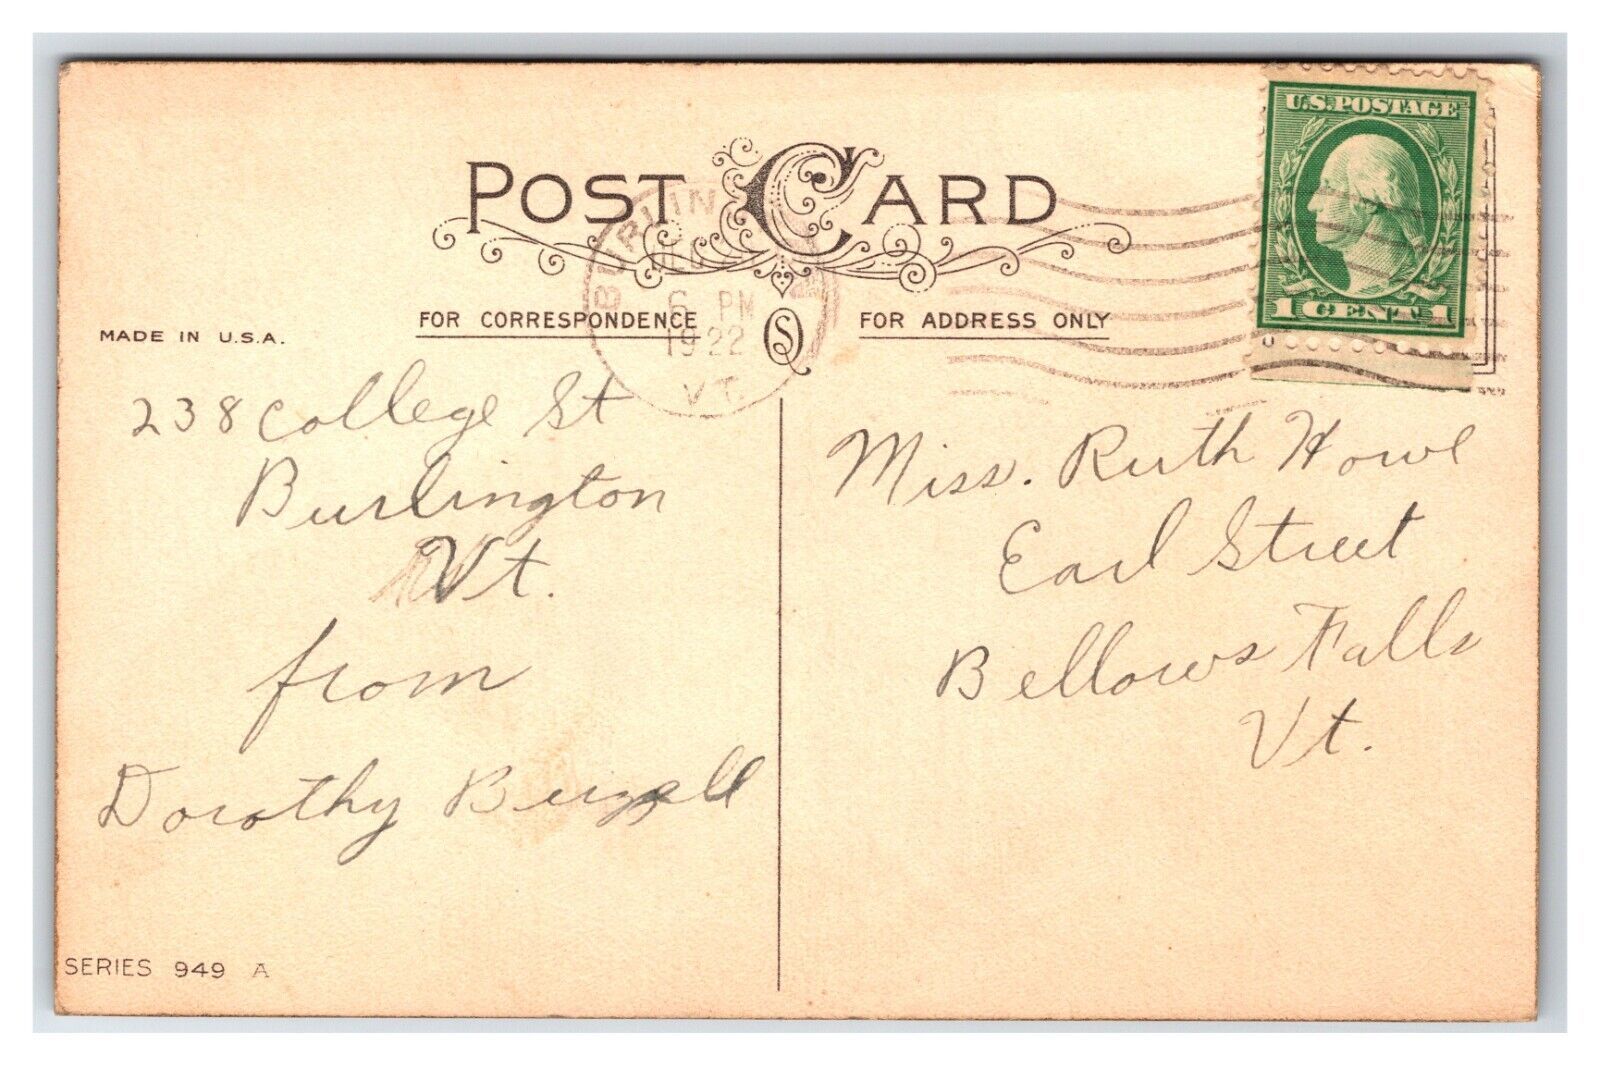 POST CARD
U.S. POSTAGE
1 CENT 1
BURLIN
6 PM
1922
VT.
MADE IN U.S.A.
FOR CORRESPONDENCE
FOR ADDRESS ONLY
238 College St
Burlington
Vt.
from
Dorothy
Miss. Ruth Howe
Earl Street
Bellows Falls
Vt.
SERIES 949 A